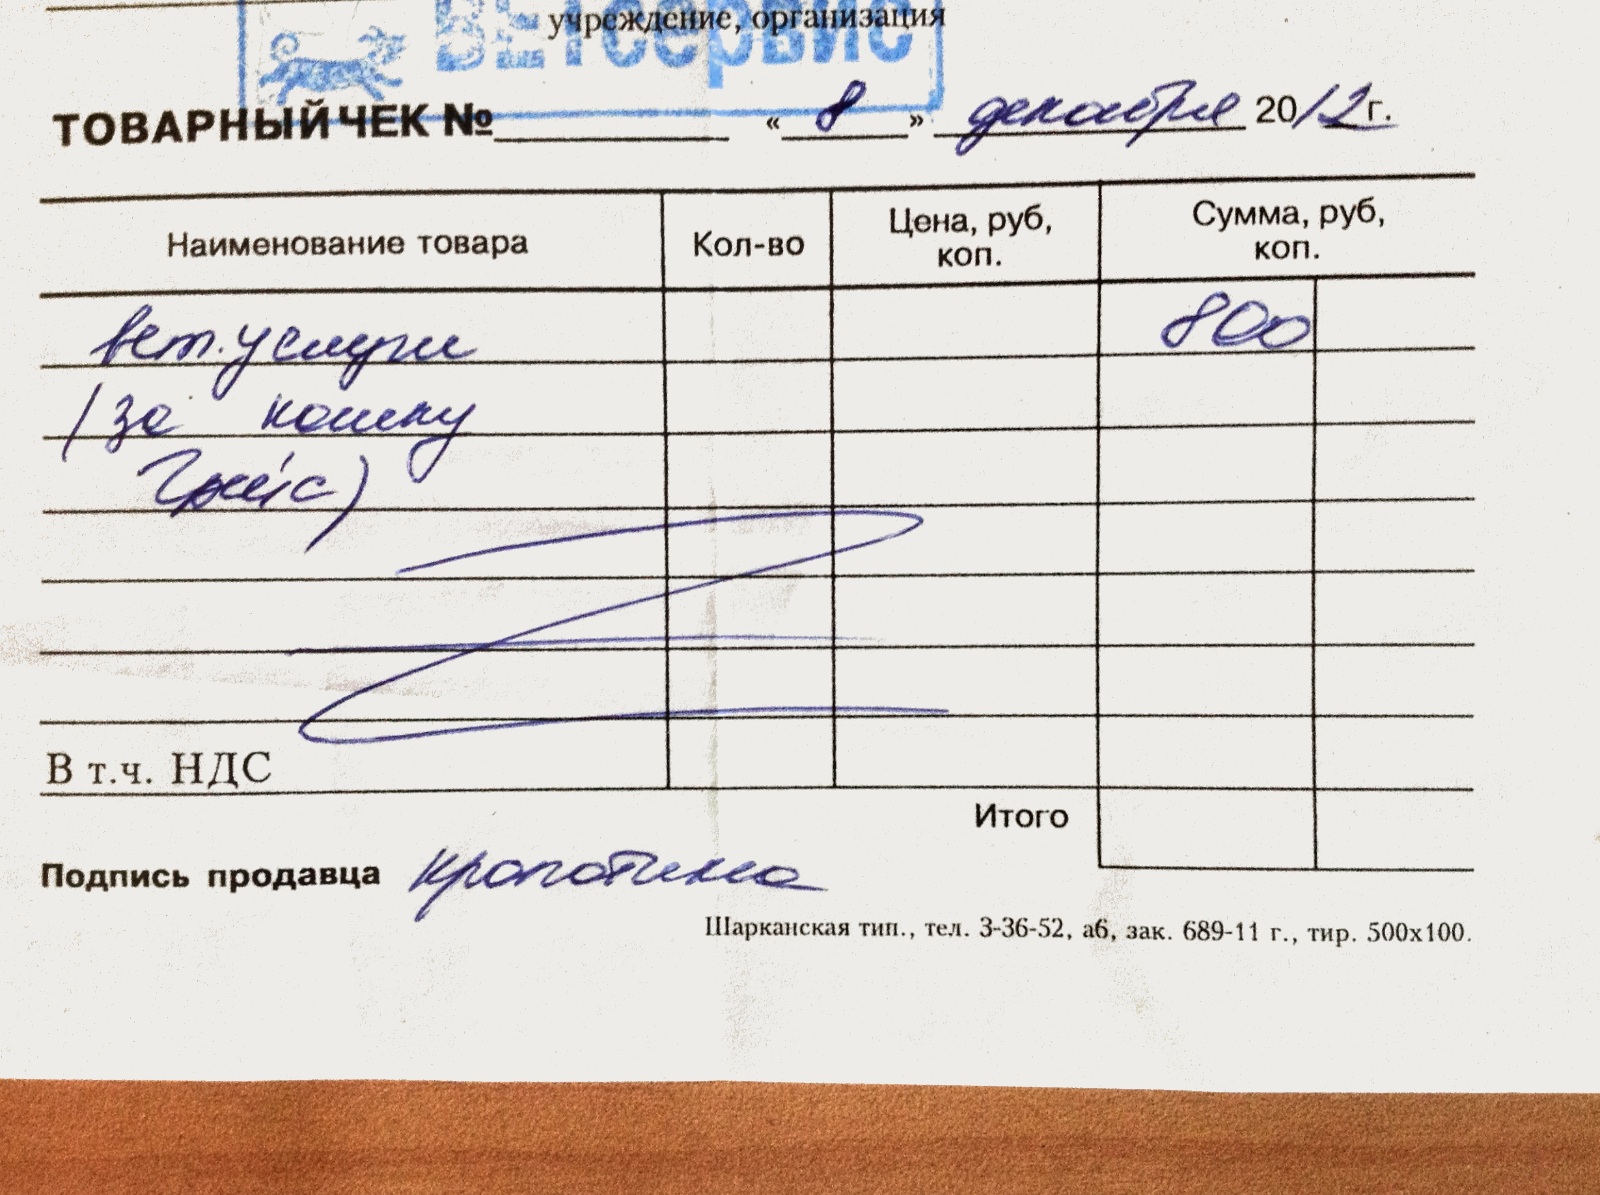 ВЕТсервис
учреждение, организация
ТОВАРНЫЙ ЧЕК №________ « 8 » декабря 2012 г.
Наименование товара Кол-во Цена, руб, коп. Сумма, руб, коп.
вет. услуги 800
(за кошку
Грейс)
В т.ч. НДС
Итого
Подпись продавца Кропотина
Шарканская тип., тел. 3-36-52, а6, зак. 689-11 г., тир. 500х100.